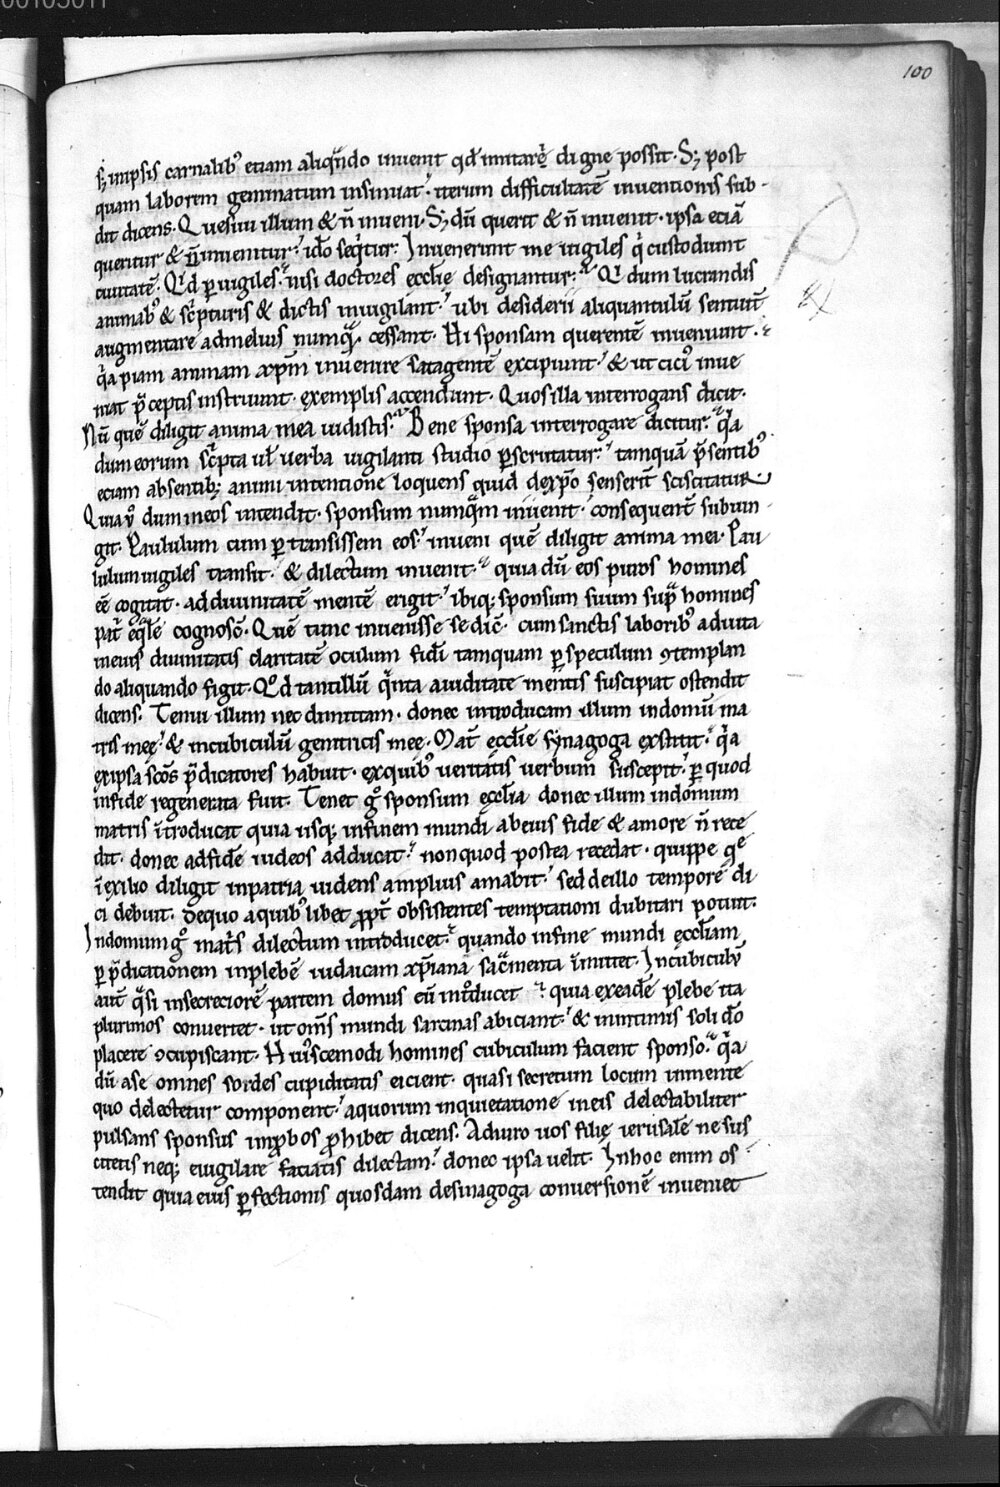 00105011
100
s; inipsis carnalib' etiam aliqndo inuenit qd imitare di gne possit. S; post
quam laborem geminatum insinuat. iterum difficultatē inuentionis sub-
dit dicens. Quesiui illum & n̄ inueni. S; dū querit & n̄ inuenit. ipsa eciā
queritur & n̄ inuenitur. ido seqitur. Inuenerunt me uigiles q custodiunt
ciuitatē. Qd p uigiles. nisi doctores eccl̄ie designantur. Qi dum lucrandis
animab' & scpturis & dictis inuigilant. ubi desiderii aliquantulū sentiūt
augmentare admelius numqā cessant. Hi sponsam querentē inueniunt.
qa piam animam xp̄m inuenire satagentē excipiunt. & ut cici' inue
niat pceptis instruunt. exemplis accendunt. Quos illa interrogans dicit.
Nū quē diligit anima mea uidistis. Bene sponsa interrogare dicitur. qa
dum eorum scpta ul' uerba uigilanti studio pscrutatur. tamquā psentib'
eciam absentib; animi intentione loquens quid dexpo senserit sciscitatur.
Quia u° dum in eos intendit. sponsum numqam inuenit. consequent̄ subiun-
git. Paululum cum p transissem eos. inueni quē diligit anima mea. Pau
lulum uigiles transit. & dilectum inuenit. quia dū eos puros homines
eē cogitat. ad diuinitatē mentē erigit. ibiq; sponsum suum sup homines
pat eqlē cognosc̄. Quē tunc inuenisse se dic̄. cum sanctis laborib' aduita
ineius diuinitatis claritatē oculum fidī tamquam p speculum 9templan
do aliquando figit. Qd tantillū qnta auiditate mentis suscipiat ostendit
dicens. Tenui illum nec dimittam. donec introducam illum indomū ma
tris meę. & incubiculū genitricis mee. Mat̄ eccl̄ie synagoga exstitit. qa
exipsa scōs pdicatores habuit. exquib' ueritatis uerbum suscepit. p quod
infide regenerata fuit. Tenet g° sponsum eccl̄ia donec illum indomum
matris introducat quia usq; infinem mundi abeius fide & amore n̄ rece
dit. donec adfidē iudeos adducat. non quod postea recedat. quippe qe
ī exilio diligit inpatria uidens amplius amabit. sed deillo tempore di
ci debuit. dequo aquib' libet ppt obsistentes temptationi dubitari potuit.
In domum g° matis dilectum introducet. quando infine mundi eccl̄iam
p pdicationem inplebē iudaicam xp̄iana sacmenta īmittet. In cubiculū
aut̄ qsi insecreciorē partem domus eū intoducet. quia exeadē plebe ita
plurimos conuertet. ut om̄s mundi sarcinas abiciant. & inintimis soli do
placere 9cupiscant. Huiscemodi homines cubiculum facient sponso. qa
dū ase omnes sordes cupiditatis eicient. quasi secretum locum inmente
quo delectetur component. aquorum inquietatione ineis delectabiliter
pulsans sponsus inpbos phibet dicens. Adiuro uos filię ierusalē ne sus
citetis neq; euigilare faciatis dilectam. donec ipsa uelit. Inhoc enim os
tendit quia eius pfectionis quosdam desinagoga conuersionē inueniet